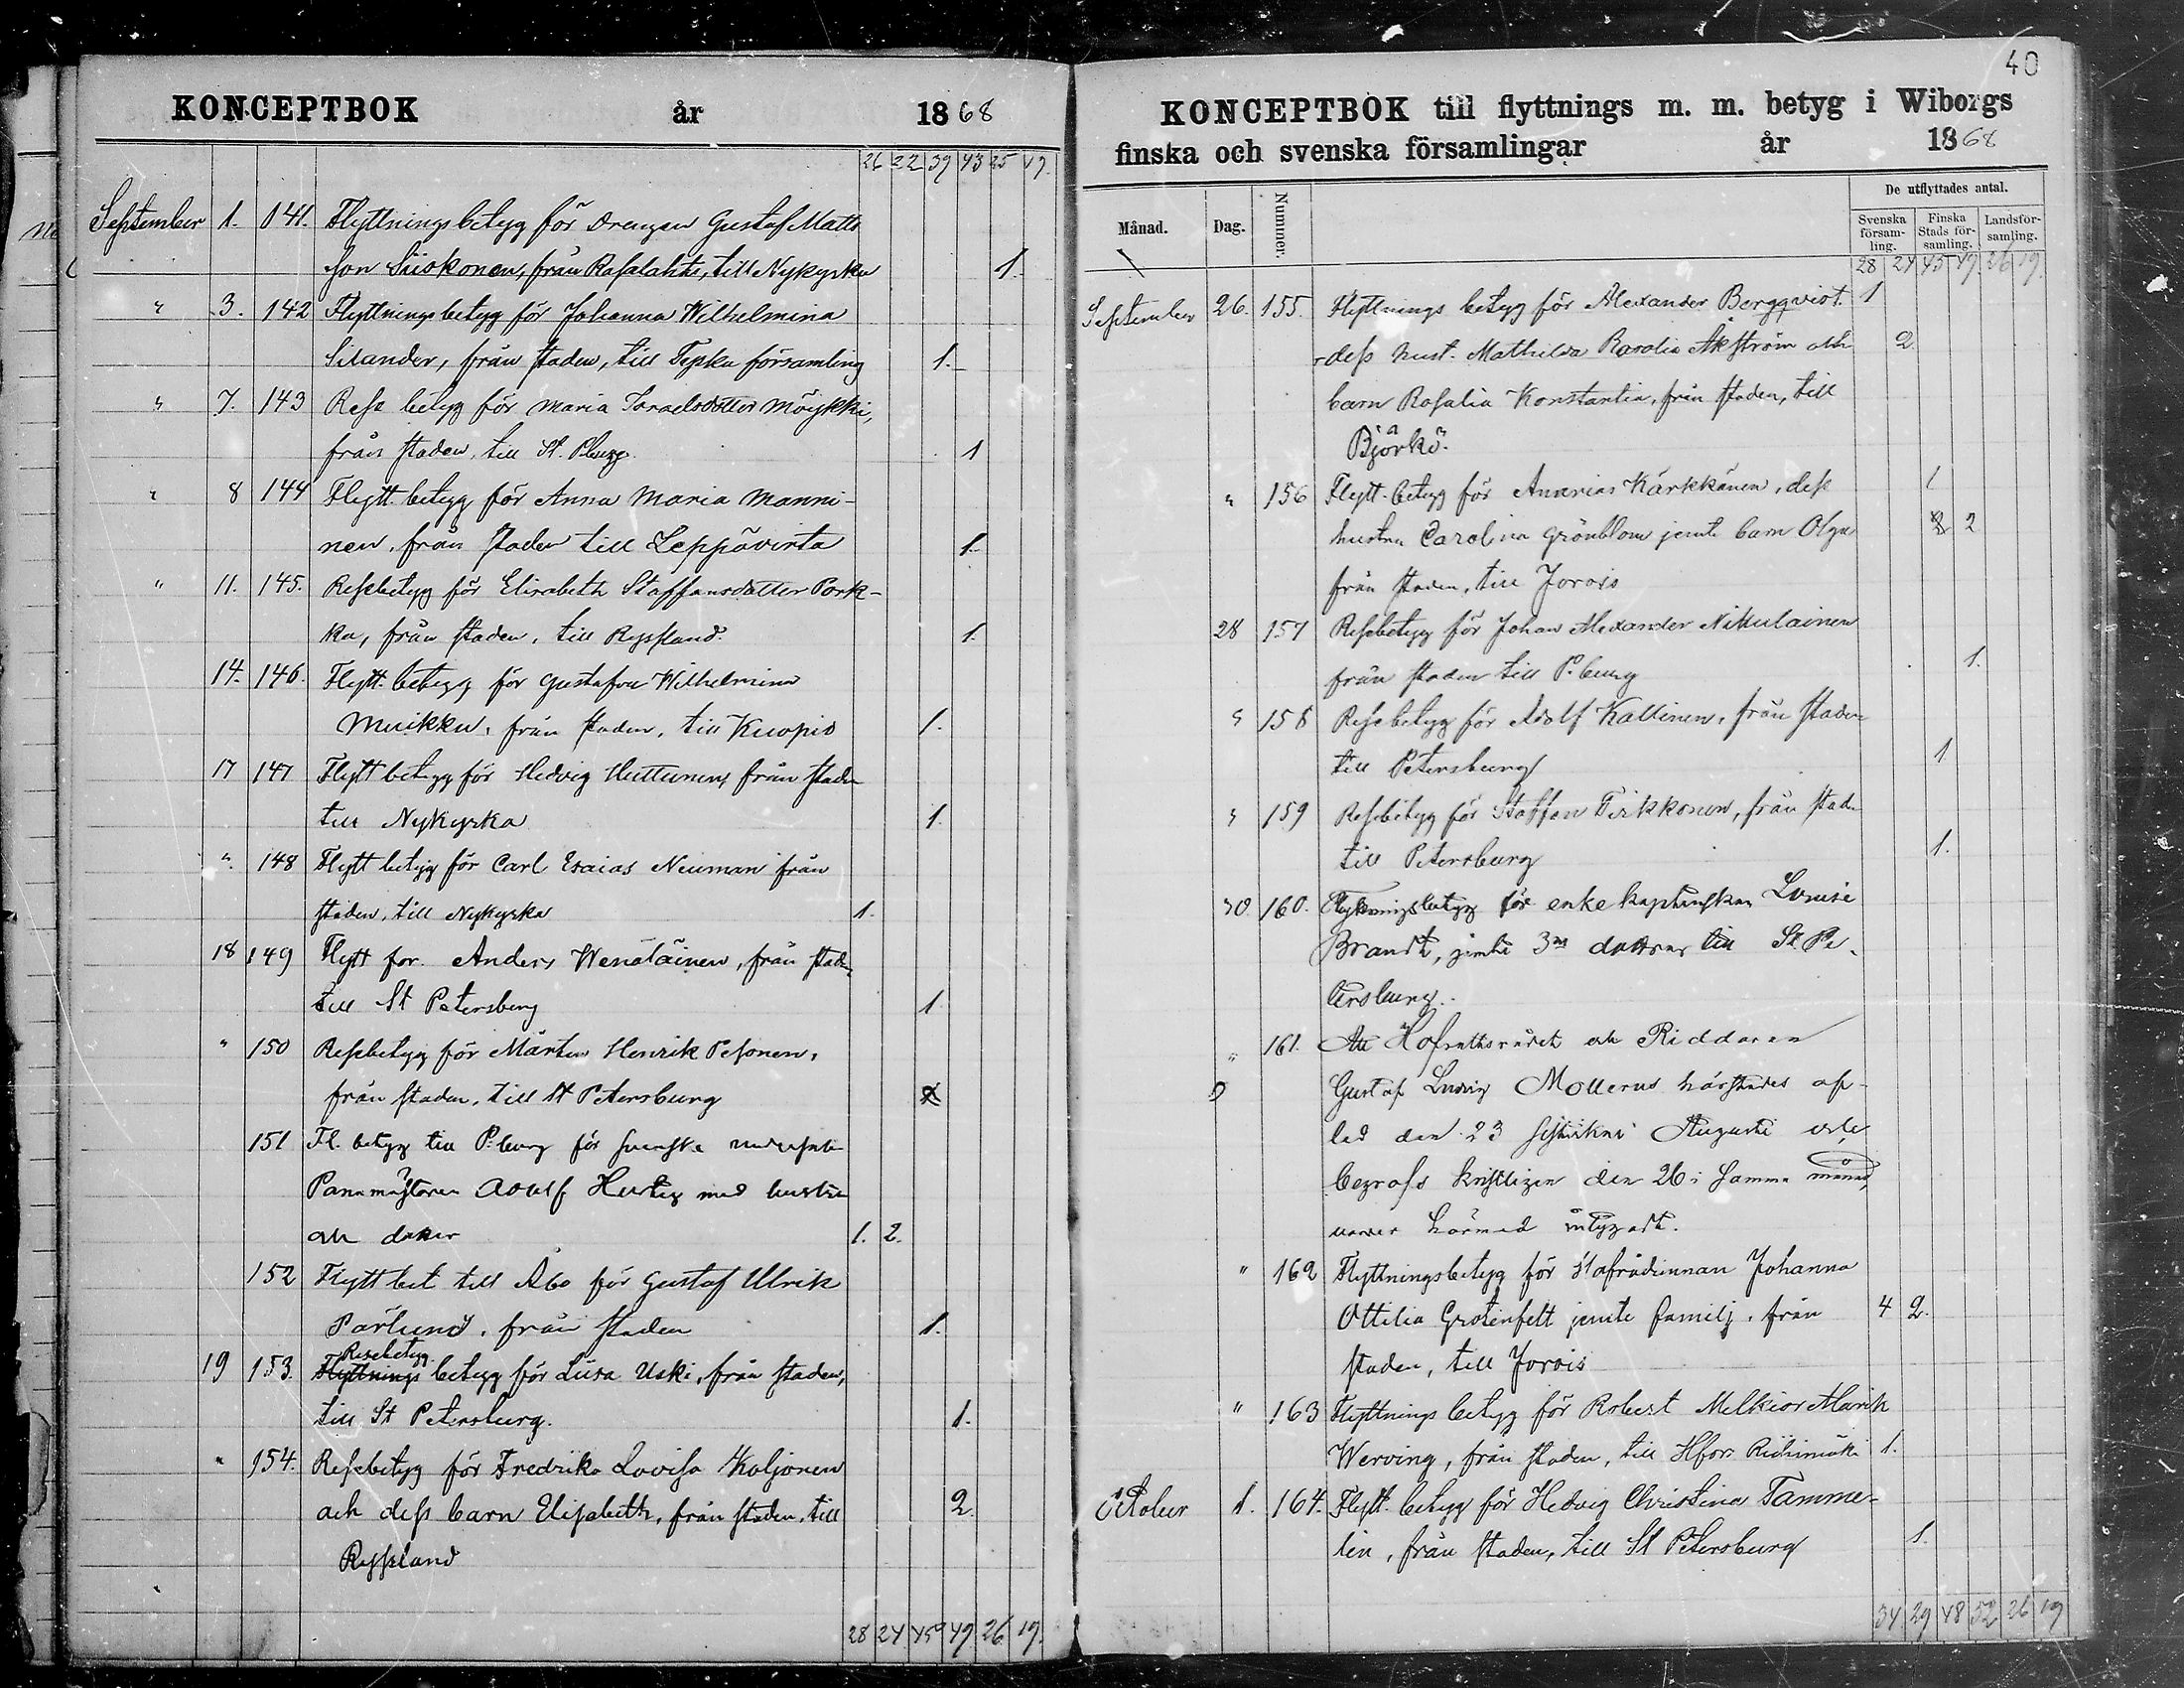 KONCEPTBOK år 1868
26 22 39 43 25 19.
September 1. 141. Flyttningsbetyg för Drengen Gustaf Matts
son Siiskonen, från Rasalahti, till Nykyrka 1.
" 3. 142 Flyttningsbetyg för Johanna Wilhelmina
Silander, från staden, till Tyska församling 1.
" 7. 143 Rese betyg för Maria Israelsdotter Möykki,
från staden, till St. Pburg. 1
" 8 144 Flytt. betyg för Anna Maria Manni-
nen, från staden till Leppävirta 1.
" 11. 145. Resebetyg för Elisabeth Staffansdotter Pork-
ka, från staden, till Ryssland. 1.
14. 146. Flytt. betyg för Gustafva Wilhelmina
Muikku, från staden, till Kuopio 1.
17 147 Flytt betyg för Hedvig Huttunen, från staden
till Nykyrka 1.
" 148 Flytt betyg för Carl Esaias Neuman från
staden, till Nykyrka 1.
18 149 Flytt för Anders Wenäläinen, från staden
till St Petersburg 1
" 150 Resebetyg för Mårten Henrik Pesonen,
från staden, till St Petersburg
151 Fl. betyg till P:burg för svenska
Adolf Hertig med hustru
och dotter 1. 2.
152 Flytt bet till Åbo för Gustaf Ulrik
Pärlund, från staden 1.
Resebetyg
19 153. Flyttnings betyg för Liisa Uski, från staden,
till St Petersburg. 1.
" 154. Resebetyg för Fredrika Lovisa Koljonen
och dess barn Elisabeth, från staden, till 2.
Ryssland
28 24 45 49 26 19.
40
KONCEPTBOK till flyttnings m. m. betyg i Wiborgs
finska och svenska församlingar år 1868
Månad. Dag. Nummer. De utflyttades antal.
Svenska församling. Finska Stads församling. Landsförsamling.
28 24 45 49 26 19.
September 26. 155. Flyttnings betyg för Alexander Bergqvist 1
dess hust. Mathilda Åkström och 2
barn Rosalia Konstantia, från staden, till
Björkö.
" 156 Flytt. betyg för Ananias Kärkkänen, dess 1
hustru Carolina Grönblom jemte barn Olga 2
från staden, till Jorois
28 157 Resebetyg för Johan Alexander Nikulainen
från staden till P.burg 1.
" 158 Resebetyg för Adolf Kallinen, från staden
till Petersburg 1
" 159 Resebetyg för Staffan Pirkkonen, från staden
till Petersburg 1.
30 160. Flyttningsbetyg för enke kaptenskan Louise
Brandt, jemte 3ne döttrar till St Pe-
tersburg.
" 161. Att Hofrättsrådet och Riddaren
Gustaf Ludvig Möllerus härstädes af-
led den 23 sistlidne Augusti och
begrofs kristligen den 26 i samma månad,
varder härmed intygadt.
" 162 Flyttningsbetyg för Hofrådinnan Johanna
Ottilia Grotenfelt jemte familj, från 4 2.
staden, till Jorois
" 163 Flyttnings betyg för Robert Melkior
Werving, från staden, till Hfors Riihimäki 1.
October 1. 164. Flytt. betyg för Hedvig Christina Tamme-
lin, från staden, till St Petersburg 1.
34 29 48 52 26 19